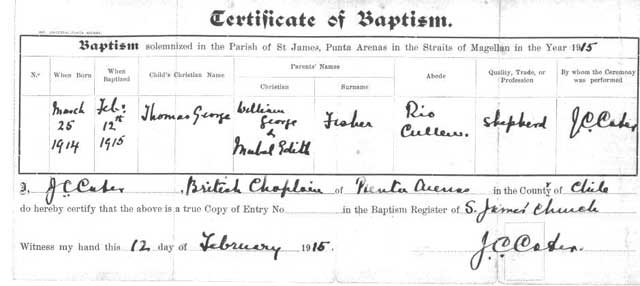 Certificate of Baptism.
Baptism solemnized in the Parish of St James, Punta Arenas in the Straits of Magellan in the Year 1915
N.o When Born When Baptized Child's Christian Name Parents' Names Abode Quality, Trade, or Profession By whom the Ceremony was performed
Christian Surname
March 25 1914
Feb: 12th 1915
Thomas George
William George & Mabal Edith
Fisher
Rio Cullen.
Shepherd
J.C. Cater
I, J.C. Cater, British Chaplain of Punta Arenas in the County of Chile
do hereby certify that the above is a true Copy of Entry No in the Baptism Register of S. James' Church
Witness my hand this 12 day of February 1915.
J.C. Cater.